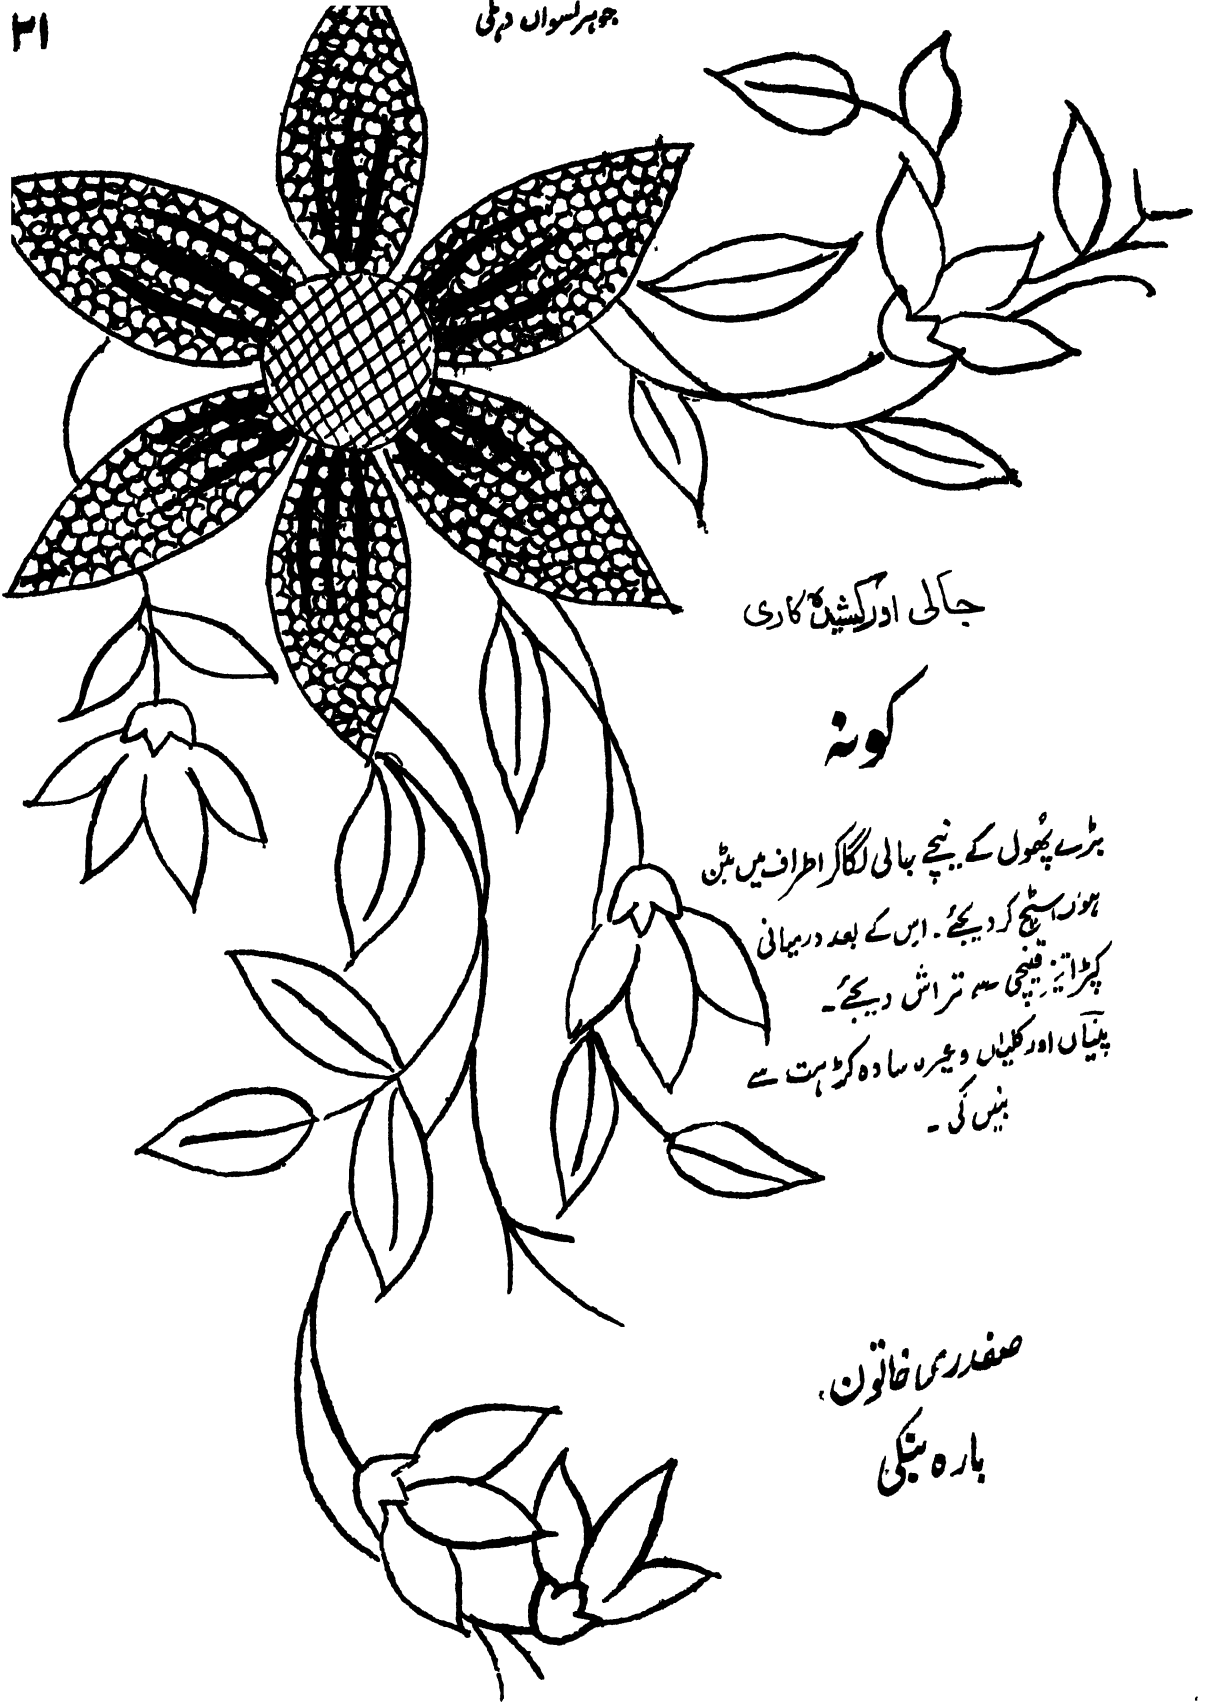 ۳۱
جوہر نسواں دہلی
جالی اور کشیدہ کاری
کونہ
بڑے پھول کے نیچے جالی لگا کر اطراف میں بٹن
ہول اسٹچ کر دیجئے۔ اس کے بعد درمیانی
کپڑا تیز قینچی سے تراش دیجئے۔
پتیاں اور کلیاں وغیرہ سادہ کڑہت سے
بنیں گی۔
صفدری خاتون۔
بارہ بنکی